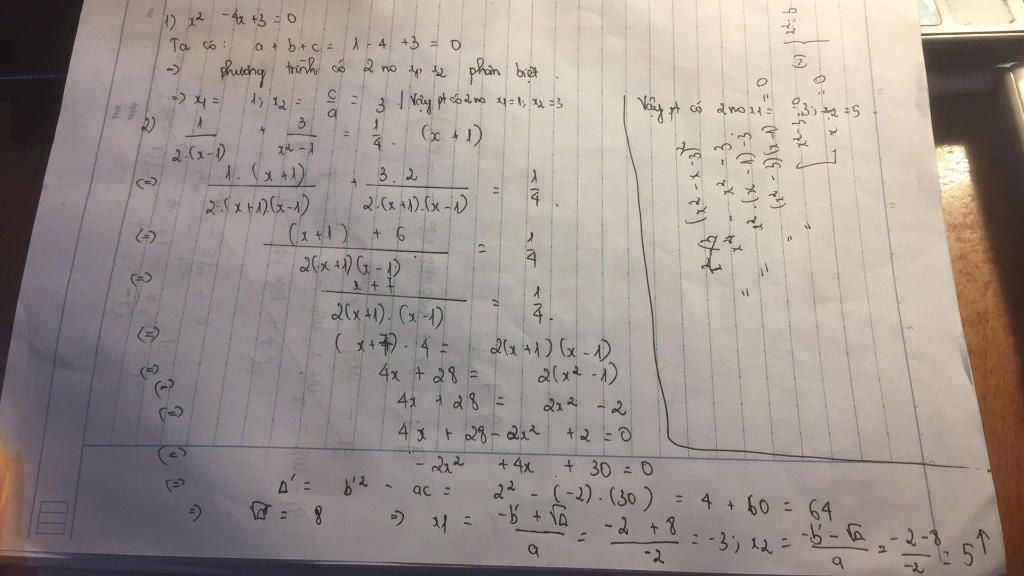 1) x² - 4x + 3 = 0
Ta có: a + b + c = 1 - 4 + 3 = 0
=> phương trình có 2 no x1, x2 phân biệt.
=> x1 = 1; x2 = c/a = 3 / Vậy pt có 2 no x1 = 1; x2 = 3
2) 1/(2.(x-1)) + 3/(x²-1) = 1/4. (x + 1)
(=) (1.(x+1))/(2.(x+1)(x-1)) + (3.2)/(2.(x+1).(x-1)) = 1/4.
(=) ((x+1) + 6)/(2(x+1)(x-1)) = 1/4
(=) (x+7)/(2(x+1).(x-1)) = 1/4.
(=) (x+7).4 = 2(x+1)(x-1)
(=) 4x + 28 = 2(x²-1)
(=) 4x + 28 = 2x² - 2
(=) 4x + 28 - 2x² + 2 = 0
(=) -2x² + 4x + 30 = 0
(=) Δ' = b'² - ac = 2² - (-2).(30) = 4 + 60 = 64
=> √Δ' = 8 => x1 = (-b' + √Δ')/a = (-2 + 8)/-2 = -3; x2 = (-b' - √Δ')/a = (-2-8)/-2 = 5 ↑
Vậy pt có 2 no x1 = -3; x2 = 5
(x² - x - 3)
x⁴ - x² - 3
= x².(x-1) - 3
= (x² - 3)(x-1) = 0